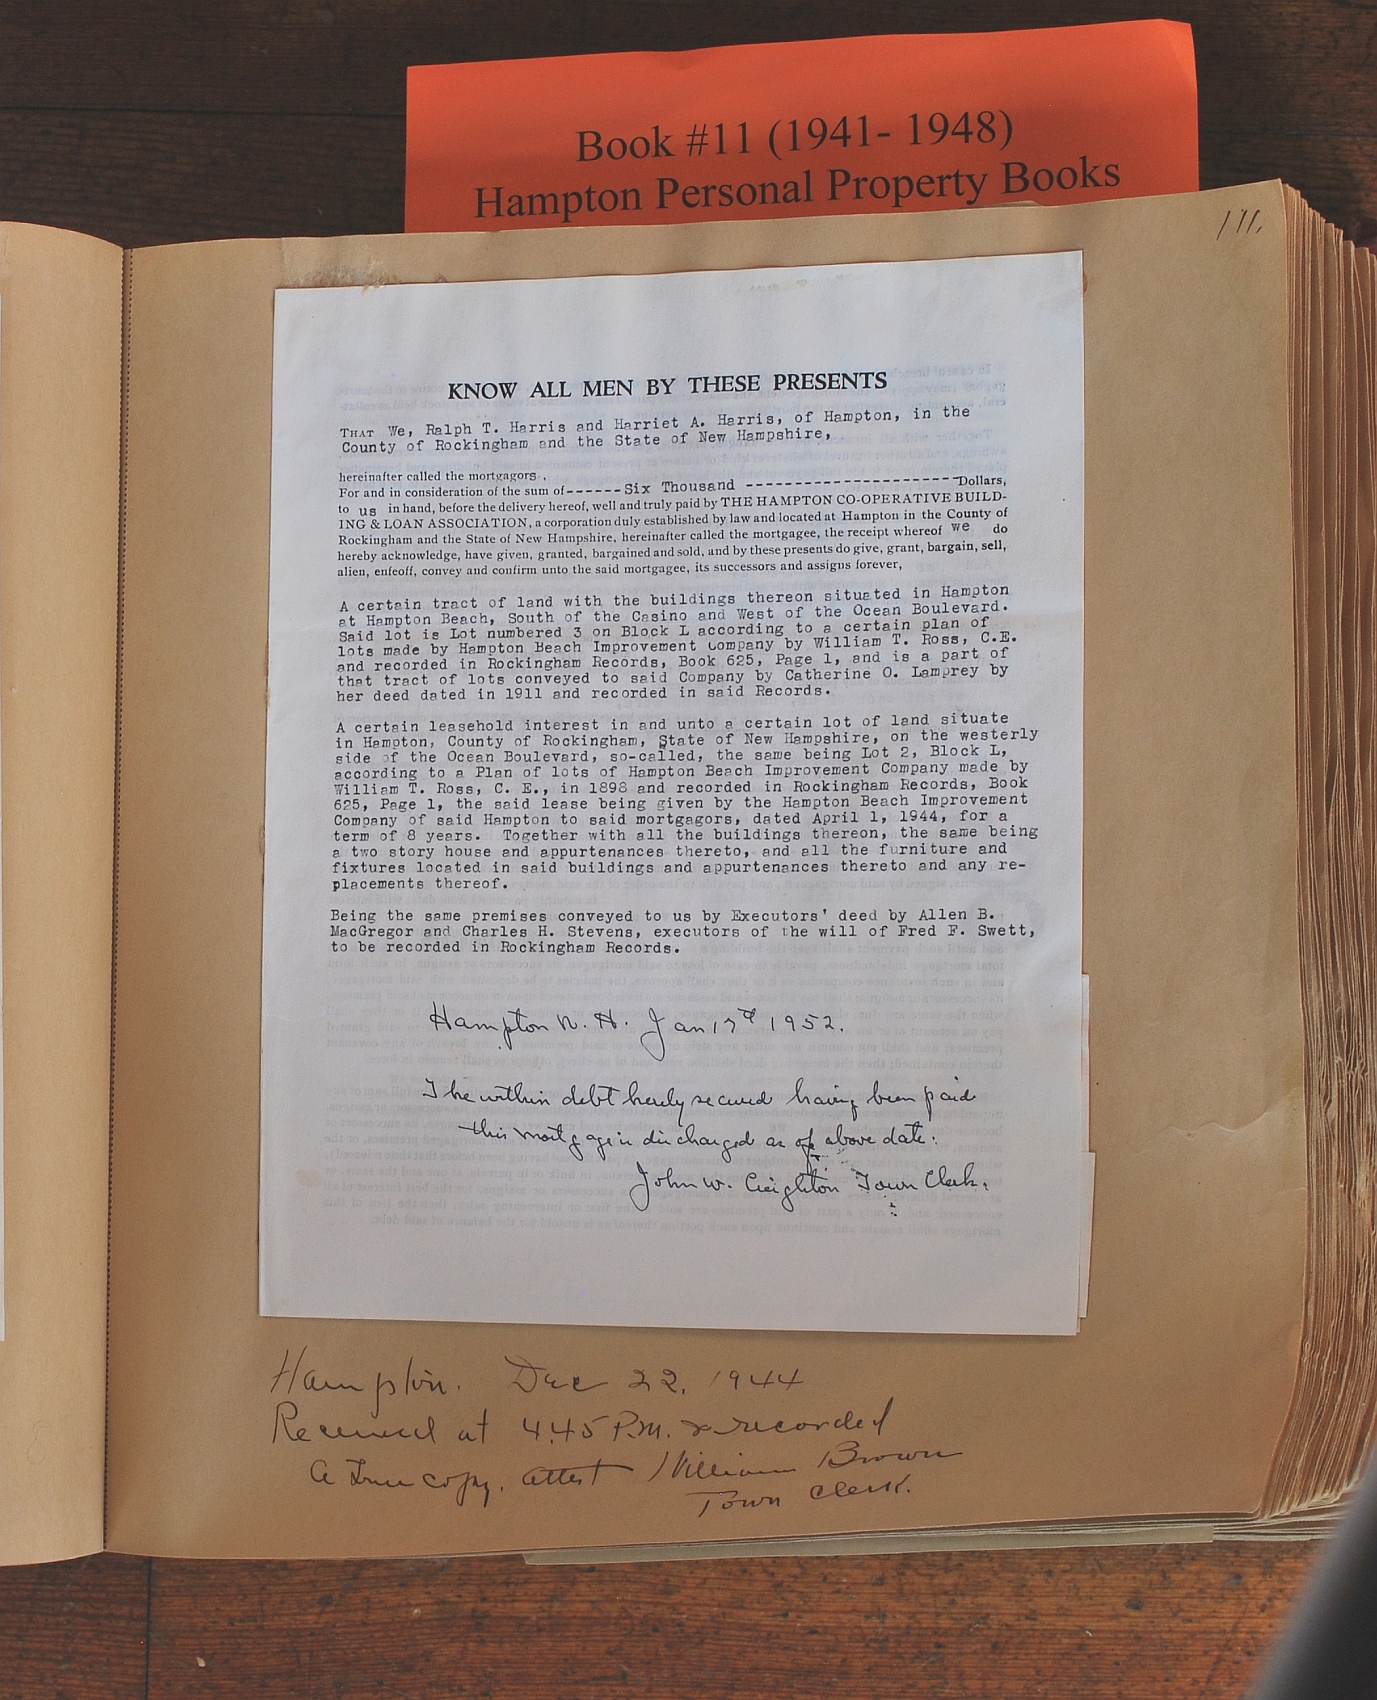 Book #11 (1941- 1948)
Hampton Personal Property Books
171.
KNOW ALL MEN BY THESE PRESENTS
THAT We, Ralph T. Harris and Harriet A. Harris, of Hampton, in the
County of Rockingham and the State of New Hampshire,
hereinafter called the mortgagors .
For and in consideration of the sum of------Six Thousand ----------------------Dollars,
to us in hand, before the delivery hereof, well and truly paid by THE HAMPTON CO-OPERATIVE BUILD-
ING & LOAN ASSOCIATION, a corporation duly established by law and located at Hampton in the County of
Rockingham and the State of New Hampshire, hereinafter called the mortgagee, the receipt whereof we do
hereby acknowledge, have given, granted, bargained and sold, and by these presents do give, grant, bargain, sell,
alien, enfeoff, convey and confirm unto the said mortgagee, its successors and assigns forever,
A certain tract of land with the buildings thereon situated in Hampton
at Hampton Beach, South of the Casino and West of the Ocean Boulevard.
Said lot is Lot numbered 3 on Block L according to a certain plan of
lots made by Hampton Beach Improvement Company by William T. Ross, C.E.
and recorded in Rockingham Records, Book 625, Page 1, and is a part of
that tract of lots conveyed to said Company by Catherine O. Lamprey by
her deed dated in 1911 and recorded in said Records.
A certain leasehold interest in and unto a certain lot of land situate
in Hampton, County of Rockingham, State of New Hampshire, on the westerly
side of the Ocean Boulevard, so-called, the same being Lot 2, Block L,
according to a Plan of lots of Hampton Beach Improvement Company made by
William T. Ross, C. E., in 1898 and recorded in Rockingham Records, Book
625, Page 1, the said lease being given by the Hampton Beach Improvement
Company of said Hampton to said mortgagors, dated April 1, 1944, for a
term of 8 years. Together with all the buildings thereon, the same being
a two story house and appurtenances thereto, and all the furniture and
fixtures located in said buildings and appurtenances thereto and any re-
placements thereof.
Being the same premises conveyed to us by Executors' deed by Allen B.
MacGregor and Charles H. Stevens, executors of the will of Fred F. Swett,
to be recorded in Rockingham Records.
Hampton N. H. Jan 17th 1952.
The within debt hereby secured having been paid
this mortgage is discharged as of above date.
John W. Creighton Town Clerk.
Hampton. Dec 22, 1944
Received at 4.45 P.M. & recorded
A True copy, attest William Brown
Town Clerk.